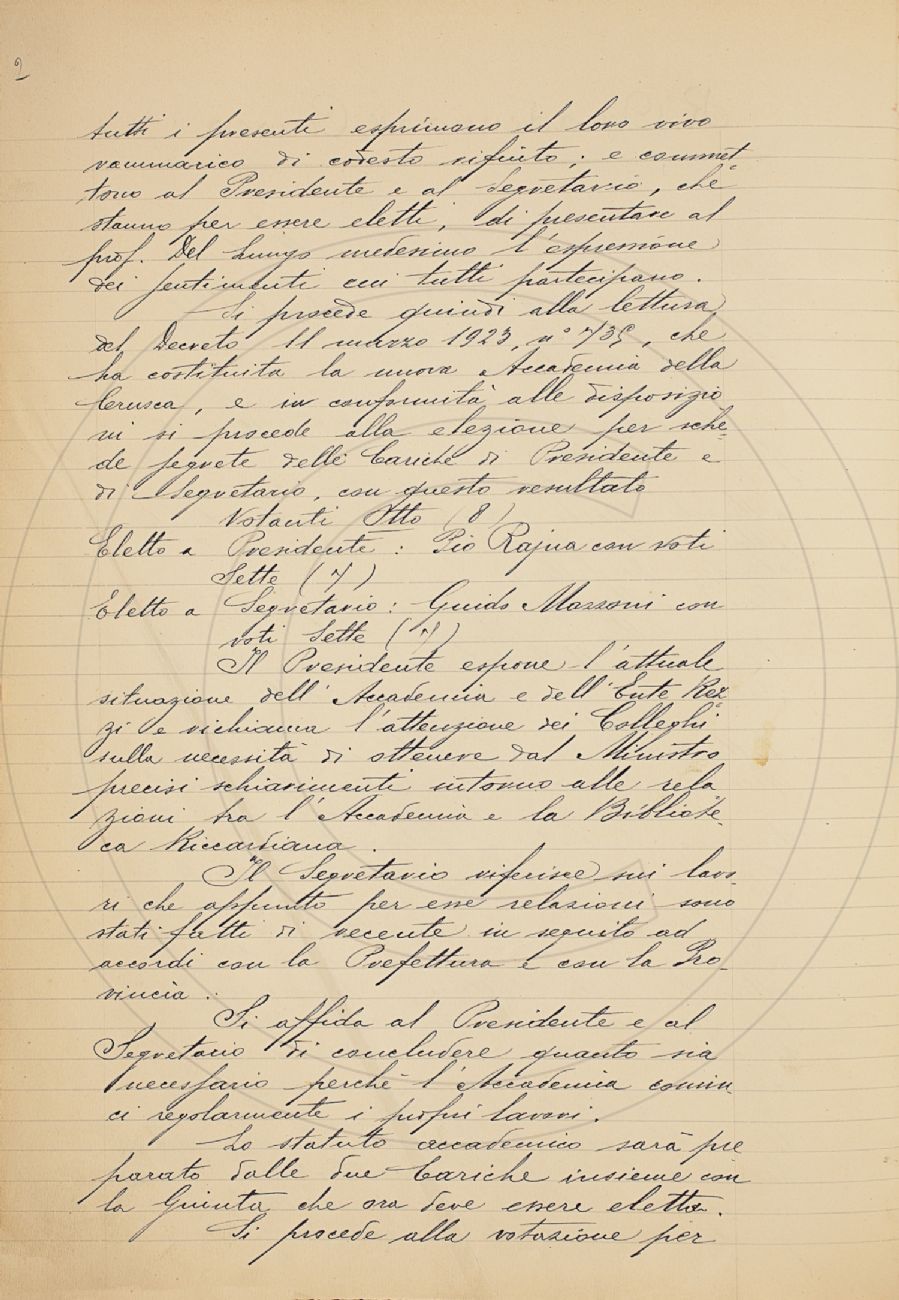 2
tutti i presenti esprimono il loro vivo
rammarico di codesto rifiuto; e commet-
tono al Presidente e al Segretario, che
stanno per essere eletti, di presentare al
prof. Del Lungo medesimo l'espressione
dei sentimenti cui tutti partecipano.
Si procede quindi alla lettura
del Decreto 11 marzo 1923, n° 735, che
ha costituita la nuova Accademia della
Crusca, e in conformità alle disposizio
ni si procede alla elezione per sche-
de segrete delle Cariche di Presidente e
di Segretario, con questo resultato
Votanti Otto (8)
Eletto a Presidente: Pio Rajna con voti
Sette (7)
Eletto a Segretario: Guido Mazzoni con
voti Sette (7)
Il Presidente espone l'attuale
situazione dell'Accademia e dell'Ente Rez-
zi e richiama l'attenzione dei Colleghi
sulla necessità di ottenere dal Ministro
precisi schiarimenti intorno alle rela
zioni tra l'Accademia e la Bibliote-
ca Riccardiana.
Il Segretario riferisce sui lavo
ri che appunto per esse relazioni sono
stati fatti di recente in seguito ad
accordi con la Prefettura e con la Pro-
vincia.
Si affida al Presidente e al
Segretario di concludere quanto sia
necessario perchè l'Accademia comin-
ci regolarmente i propri lavori.
Lo statuto accademico sarà pre
parato dalle due Cariche insieme con
la Giunta che ora deve essere eletta.
Si procede alla votazione per